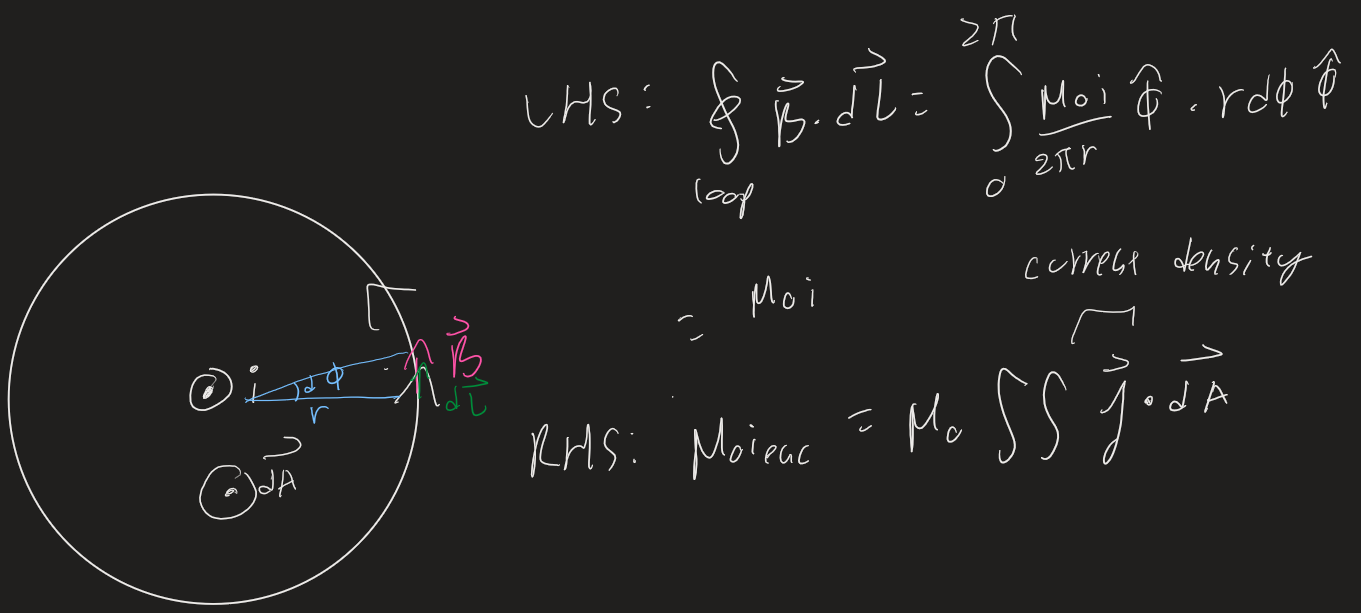 LHS: ∮loop B⃗ · dL⃗ = ∫₀^2π μ₀i/2πr φ̂ · r dφ φ̂
= μ₀i
current density
RHS: μ₀ienc = μ₀ ∫∫ j⃗ · dA⃗
B⃗
i
dφ
r
dL⃗
dA⃗